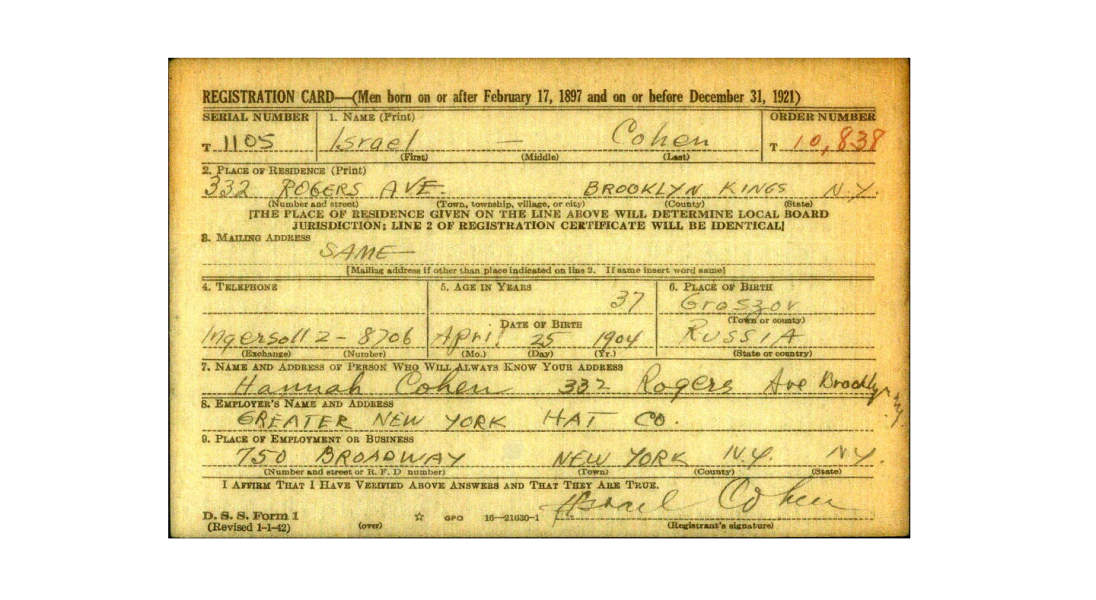 REGISTRATION CARD—(Men born on or after February 17, 1897 and on or before December 31, 1921)
SERIAL NUMBER 1. NAME (Print) ORDER NUMBER
T 1105 Israel — Cohen T 10,838
(First) (Middle) (Last)
2. PLACE OF RESIDENCE (Print)
332 ROGERS AVE. BROOKLYN KINGS N.Y.
(Number and street) (Town, township, village, or city) (County) (State)
[THE PLACE OF RESIDENCE GIVEN ON THE LINE ABOVE WILL DETERMINE LOCAL BOARD
JURISDICTION; LINE 2 OF REGISTRATION CERTIFICATE WILL BE IDENTICAL]
3. MAILING ADDRESS
SAME—
[Mailing address if other than place indicated on line 2. If same insert word same]
4. TELEPHONE 5. AGE IN YEARS 6. PLACE OF BIRTH
37 Groszov
DATE OF BIRTH (Town or county)
Ingersoll 2-8706 April 25 1904 RUSSIA
(Exchange) (Number) (Mo.) (Day) (Yr.) (State or country)
7. NAME AND ADDRESS OF PERSON WHO WILL ALWAYS KNOW YOUR ADDRESS
Hannah Cohen 332 Rogers Ave Brooklyn N.Y.
8. EMPLOYER'S NAME AND ADDRESS
GREATER NEW YORK HAT CO.
9. PLACE OF EMPLOYMENT OR BUSINESS
750 BROADWAY NEW YORK N.Y. NY.
(Number and street or R. F. D number) (Town) (County) (State)
I AFFIRM THAT I HAVE VERIFIED ABOVE ANSWERS AND THAT THEY ARE TRUE.
Israel Cohen
D. S. S. Form 1
(Revised 1-1-42) (over) ☆ GPO 16—21630-1 (Registrant's signature)